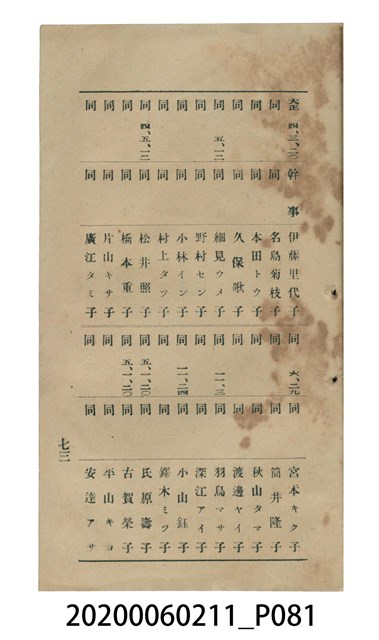 大正 四、三、二〇 幹事 伊藤里代子
同 同 名島菊枝子
同 同 本田トウ子
同 同 久保歌子
同 五、一二 同 細見ウメ子
同 同 野村セン子
同 同 小林イン子
同 同 村上タツ子
同 四、五、一二 同 松井照子
同 同 橋本重子
同 同 片山キサ子
同 同 廣江タミ子
同 六、二九 同 宮本キク子
同 同 筒井隆子
同 同 秋山タマ子
同 同 渡邊ヤイ子
同 一一、三 同 羽鳥マサ子
同 同 深江アイ子
同 一一、二四 同 小山鈺子
同 同 鐸木ミツ子
同 五、一、二〇 同 氏原壽子
同 五、一、二〇 同 古賀榮子
同 同 平山キヨ
同 同 安達アサ
七三
20200060211_P081